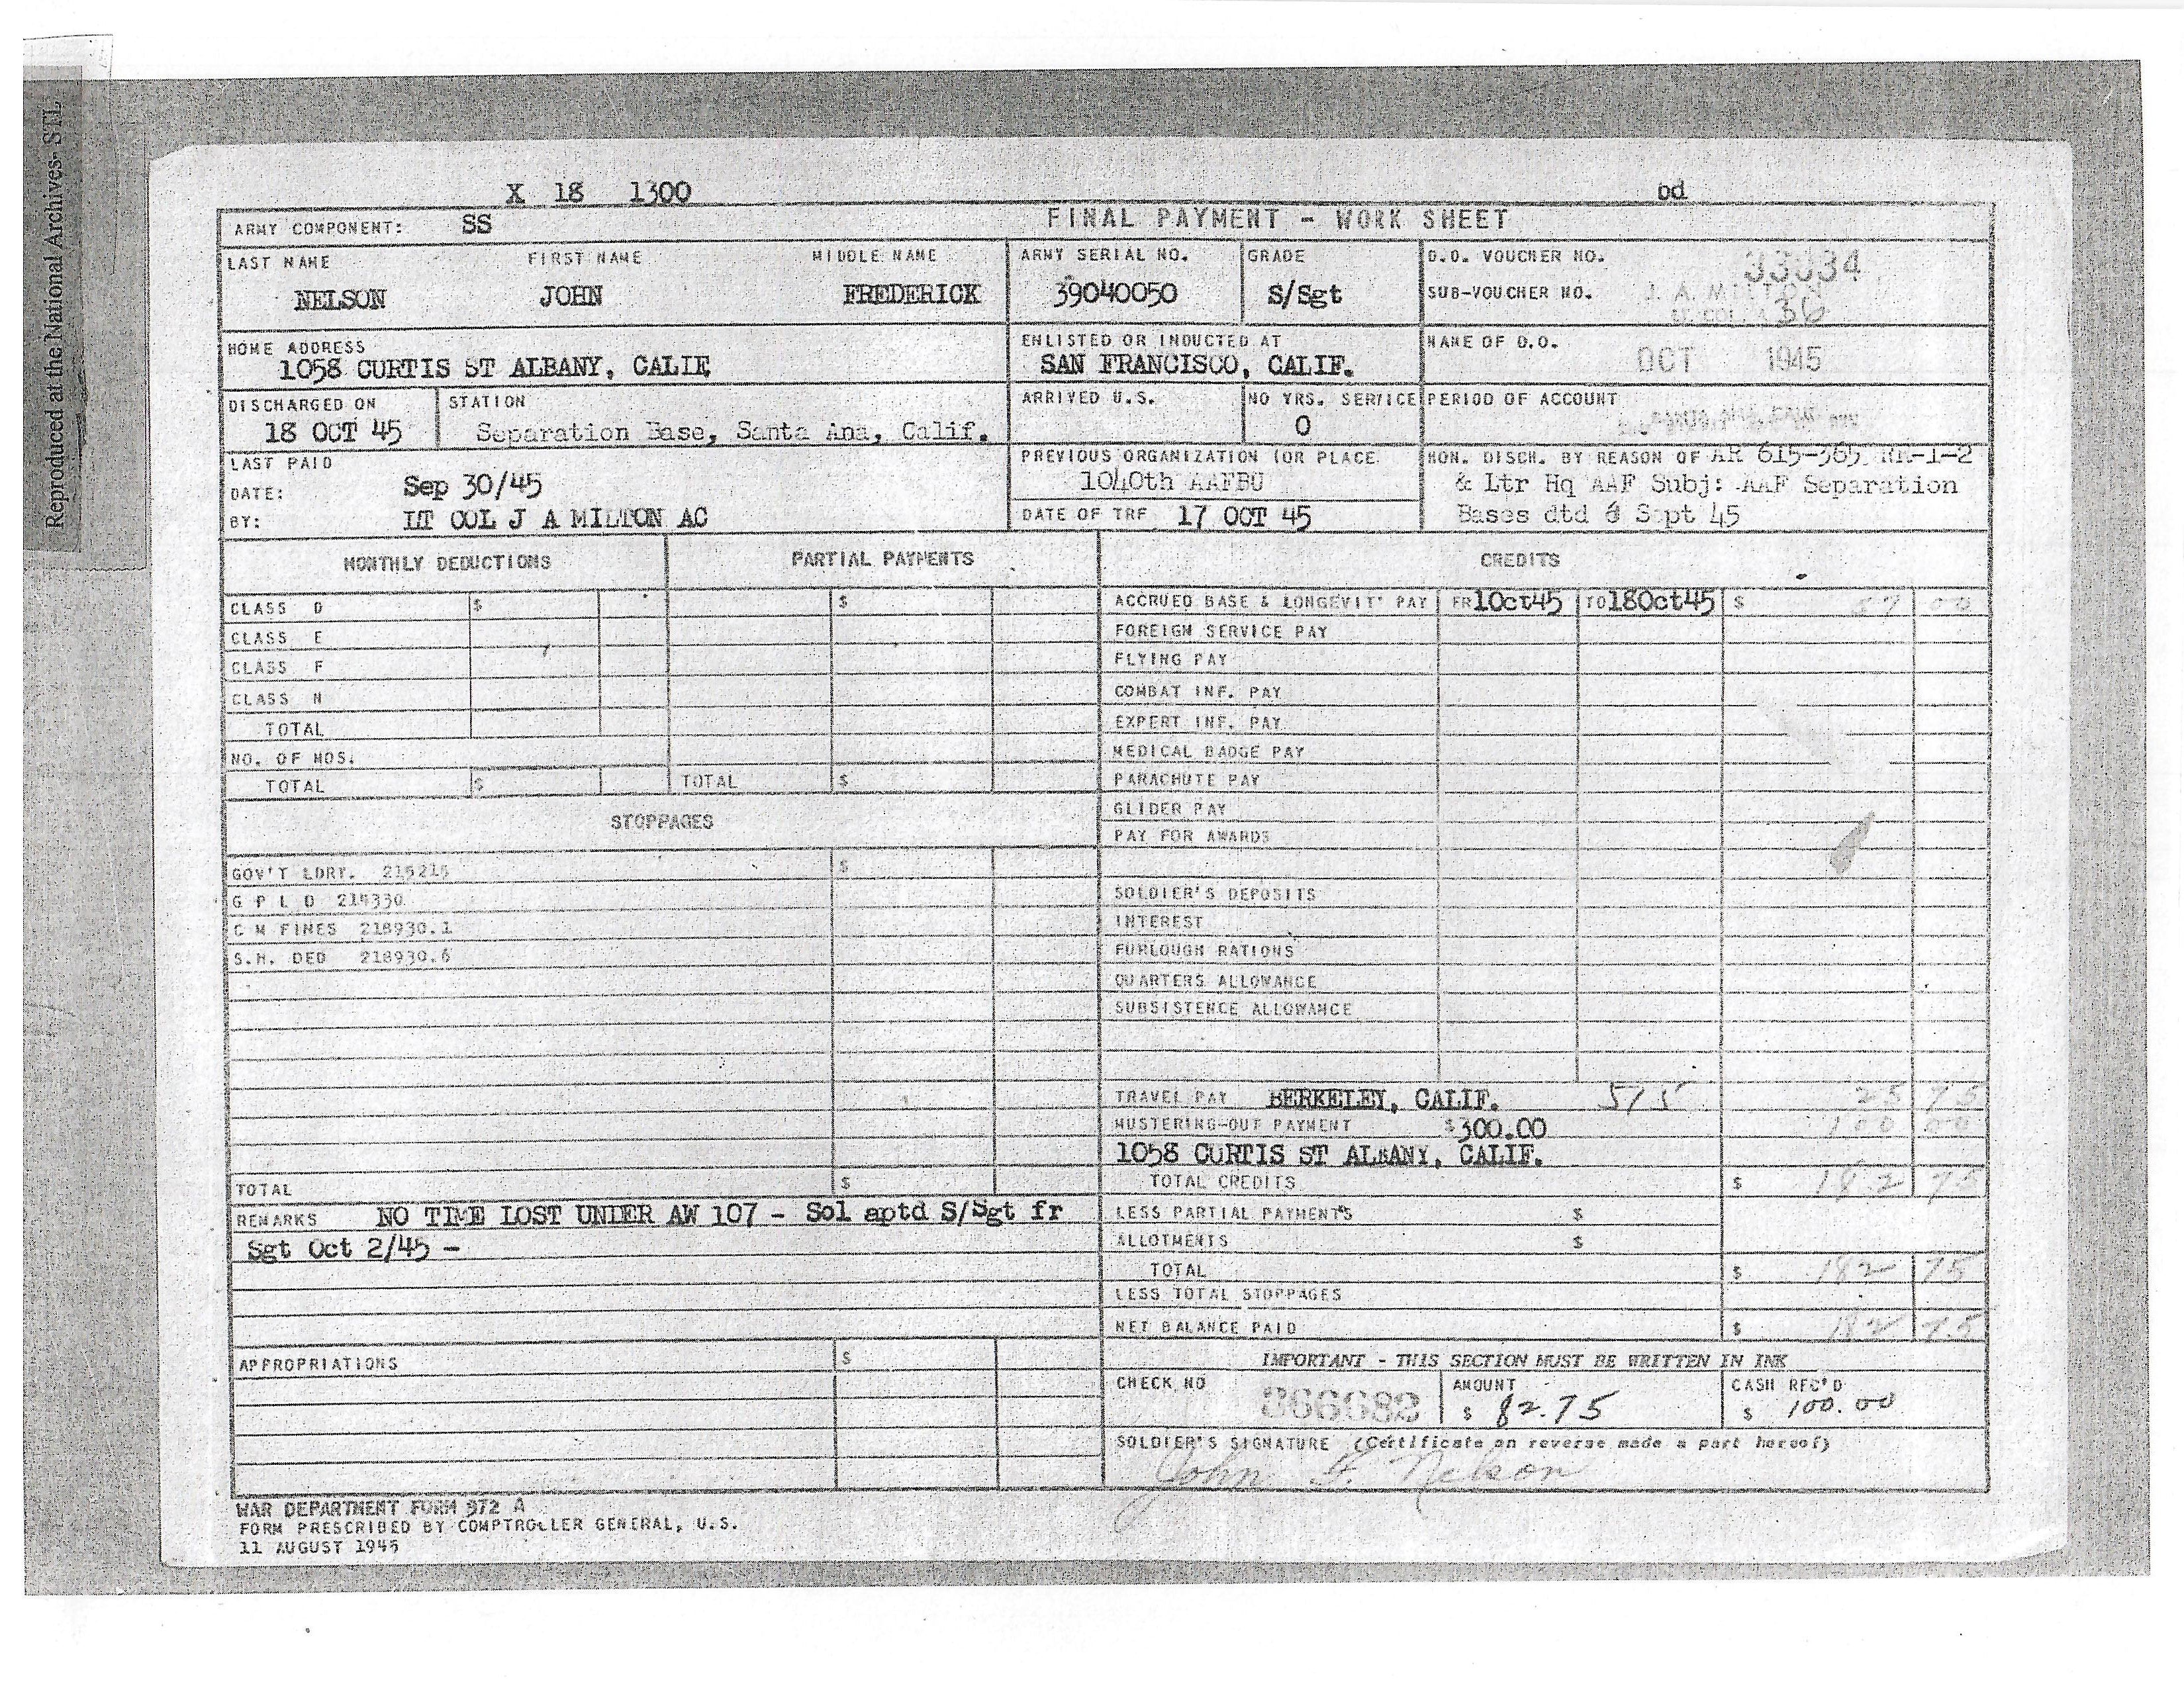 Reproduced at the National Archives- STL
X 18 1300 bd
ARMY COMPONENT: SS FINAL PAYMENT - WORK SHEET
LAST NAME FIRST NAME MIDDLE NAME ARMY SERIAL NO. GRADE D.O. VOUCHER NO. 33334
NELSON JOHN FREDERICK 39040050 S/Sgt SUB-VOUCHER NO. 36
J. A. MILTON
LT. COL.
HOME ADDRESS ENLISTED OR INDUCTED AT NAME OF D.O.
1058 CURTIS ST ALBANY, CALIF SAN FRANCISCO, CALIF. OCT 1945
DISCHARGED ON STATION ARRIVED U.S. NO YRS. SERVICE PERIOD OF ACCOUNT
18 OCT 45 Separation Base, Santa Ana, Calif. 0
LAST PAID PREVIOUS ORGANIZATION (OR PLACE HON. DISCH. BY REASON OF AR 615-365 RR-1-2
DATE: Sep 30/45 1040th AAFBU & Ltr Hq AAF Subj: AAF Separation
BY: LT COL J A MILTON AC DATE OF TRF 17 OCT 45 Bases dtd 6 Sept 45
MONTHLY DEDUCTIONS PARTIAL PAYMENTS CREDITS
CLASS D $ $ ACCRUED BASE & LONGEVIT' PAY FR 1Oct45 TO 18Oct45 $ 57 00
CLASS E FOREIGN SERVICE PAY
CLASS F FLYING PAY
CLASS N COMBAT INF. PAY
TOTAL EXPERT INF. PAY
NO. OF MOS. MEDICAL BADGE PAY
TOTAL $ TOTAL $ PARACHUTE PAY
GLIDER PAY
STOPPAGES PAY FOR AWARDS
GOV'T LDRY. 215215 $
G P L D 219330 SOLDIER'S DEPOSITS
C M FINES 218930.1 INTEREST
S.H. DED 218930.6 FURLOUGH RATIONS
QUARTERS ALLOWANCE
SUBSISTENCE ALLOWANCE
TRAVEL PAY BERKELEY, CALIF. 515 25 75
MUSTERING-OUT PAYMENT $300.00 100 00
1058 CURTIS ST ALBANY, CALIF.
TOTAL $ TOTAL CREDITS $ 182 75
REMARKS NO TIME LOST UNDER AW 107 - Sol aptd S/Sgt fr LESS PARTIAL PAYMENTS $
Sgt Oct 2/45 - ALLOTMENTS $
TOTAL $ 182 75
LESS TOTAL STOPPAGES
NET BALANCE PAID $ 182 75
APPROPRIATIONS $ IMPORTANT - THIS SECTION MUST BE WRITTEN IN INK
CHECK NO 366682 AMOUNT $ 82.75 CASH REC'D $ 100.00
SOLDIER'S SIGNATURE (Certificate on reverse made a part hereof)
John F. Nelson
WAR DEPARTMENT FORM 372 A
FORM PRESCRIBED BY COMPTROLLER GENERAL, U.S.
11 AUGUST 1945